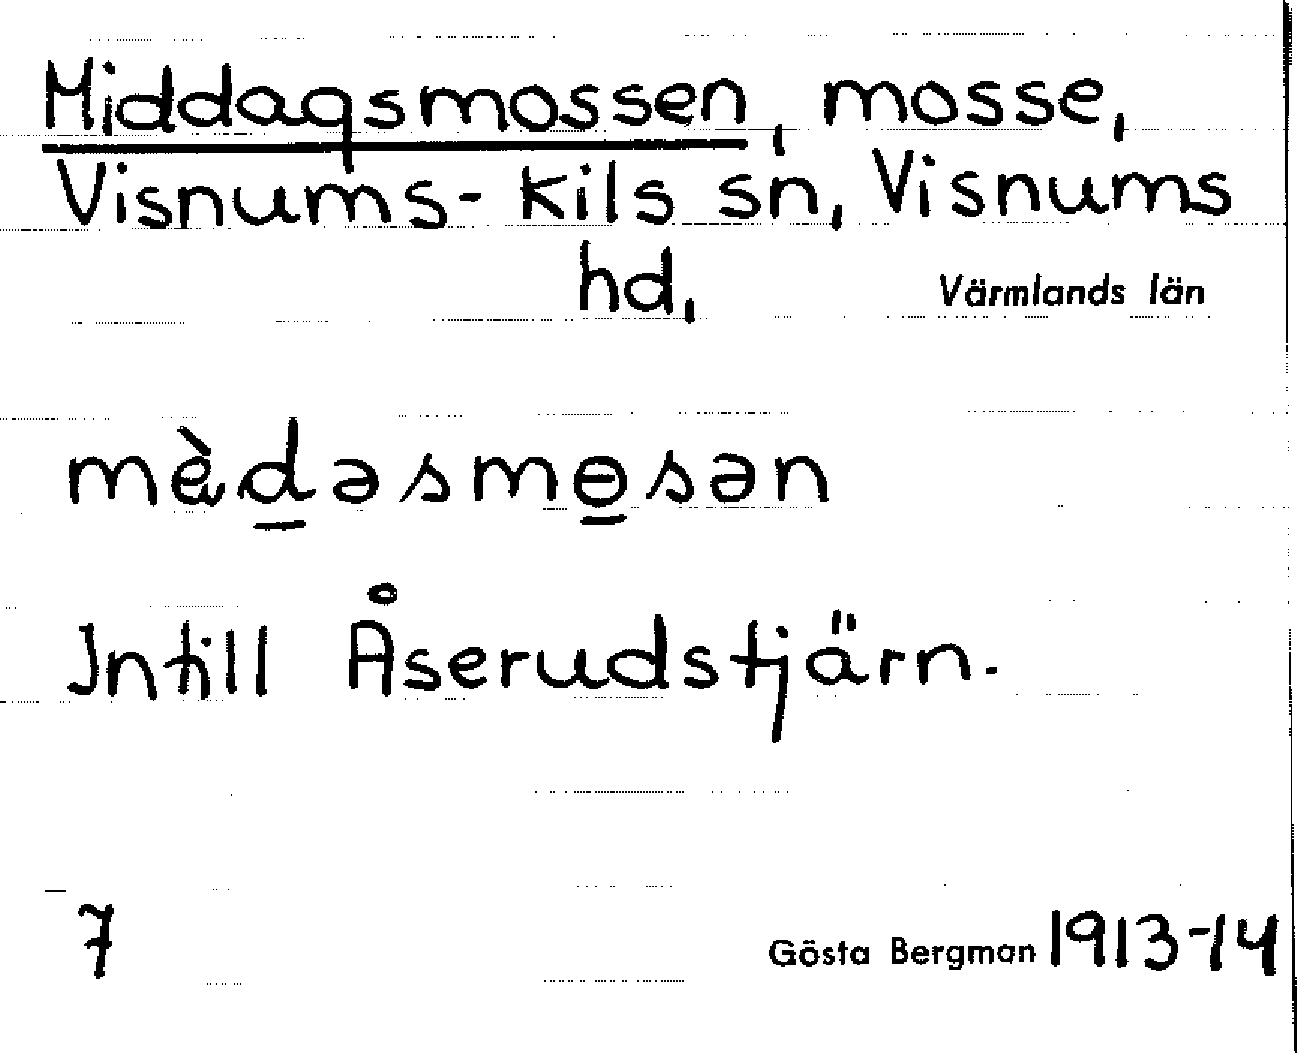 Middagsmossen, mosse,
Visnums-Kils sn, Visnums
hd, Värmlands län
mèd̲əsmɵ̲sən
Intill Åserudstjärn.
7 Gösta Bergman 1913-14